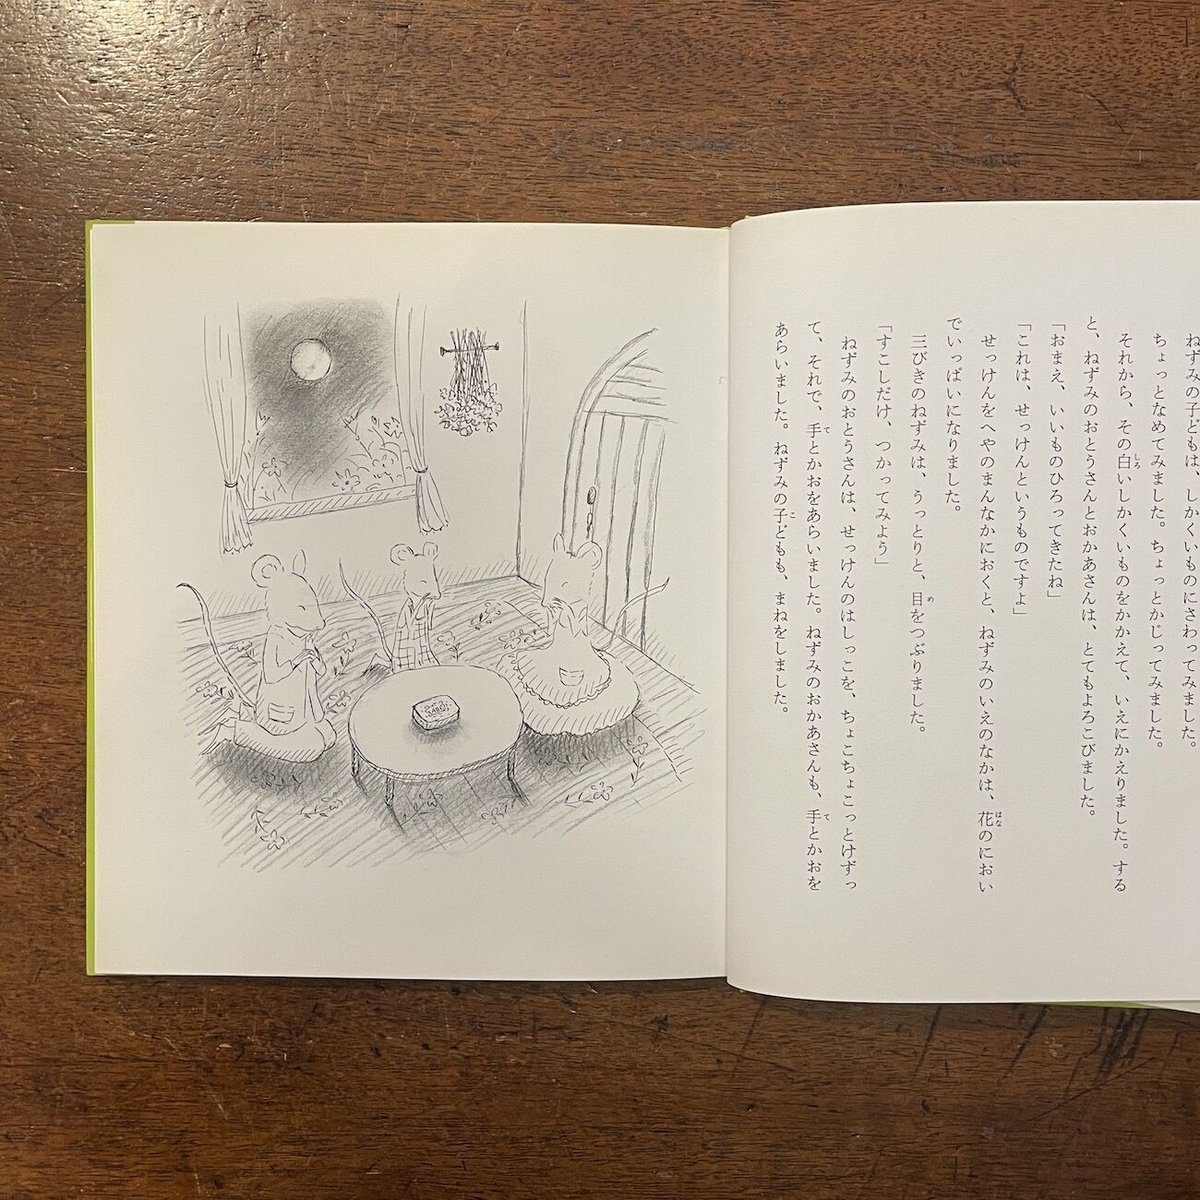 ねずみの子どもは、しかくいものにさわってみました。
ちょっとなめてみました。ちょっとかじってみました。
それから、その白いしかくいものをかかえて、いえにかえりました。する
と、ねずみのおとうさんとおかあさんは、とてもよろこびました。
「おまえ、いいものひろってきたね」
「これは、せっけんというものですよ」
せっけんをへやのまんなかにおくと、ねずみのいえのなかは、花のにおい
でいっぱいになりました。
三びきのねずみは、うっとりと、目をつぶりました。
「すこしだけ、つかってみよう」
ねずみのおとうさんは、せっけんのはしっこを、ちょこちょこっとけずっ
て、それで、手とかおをあらいました。ねずみのおかあさんも、手とかおを
あらいました。ねずみの子どもも、まねをしました。